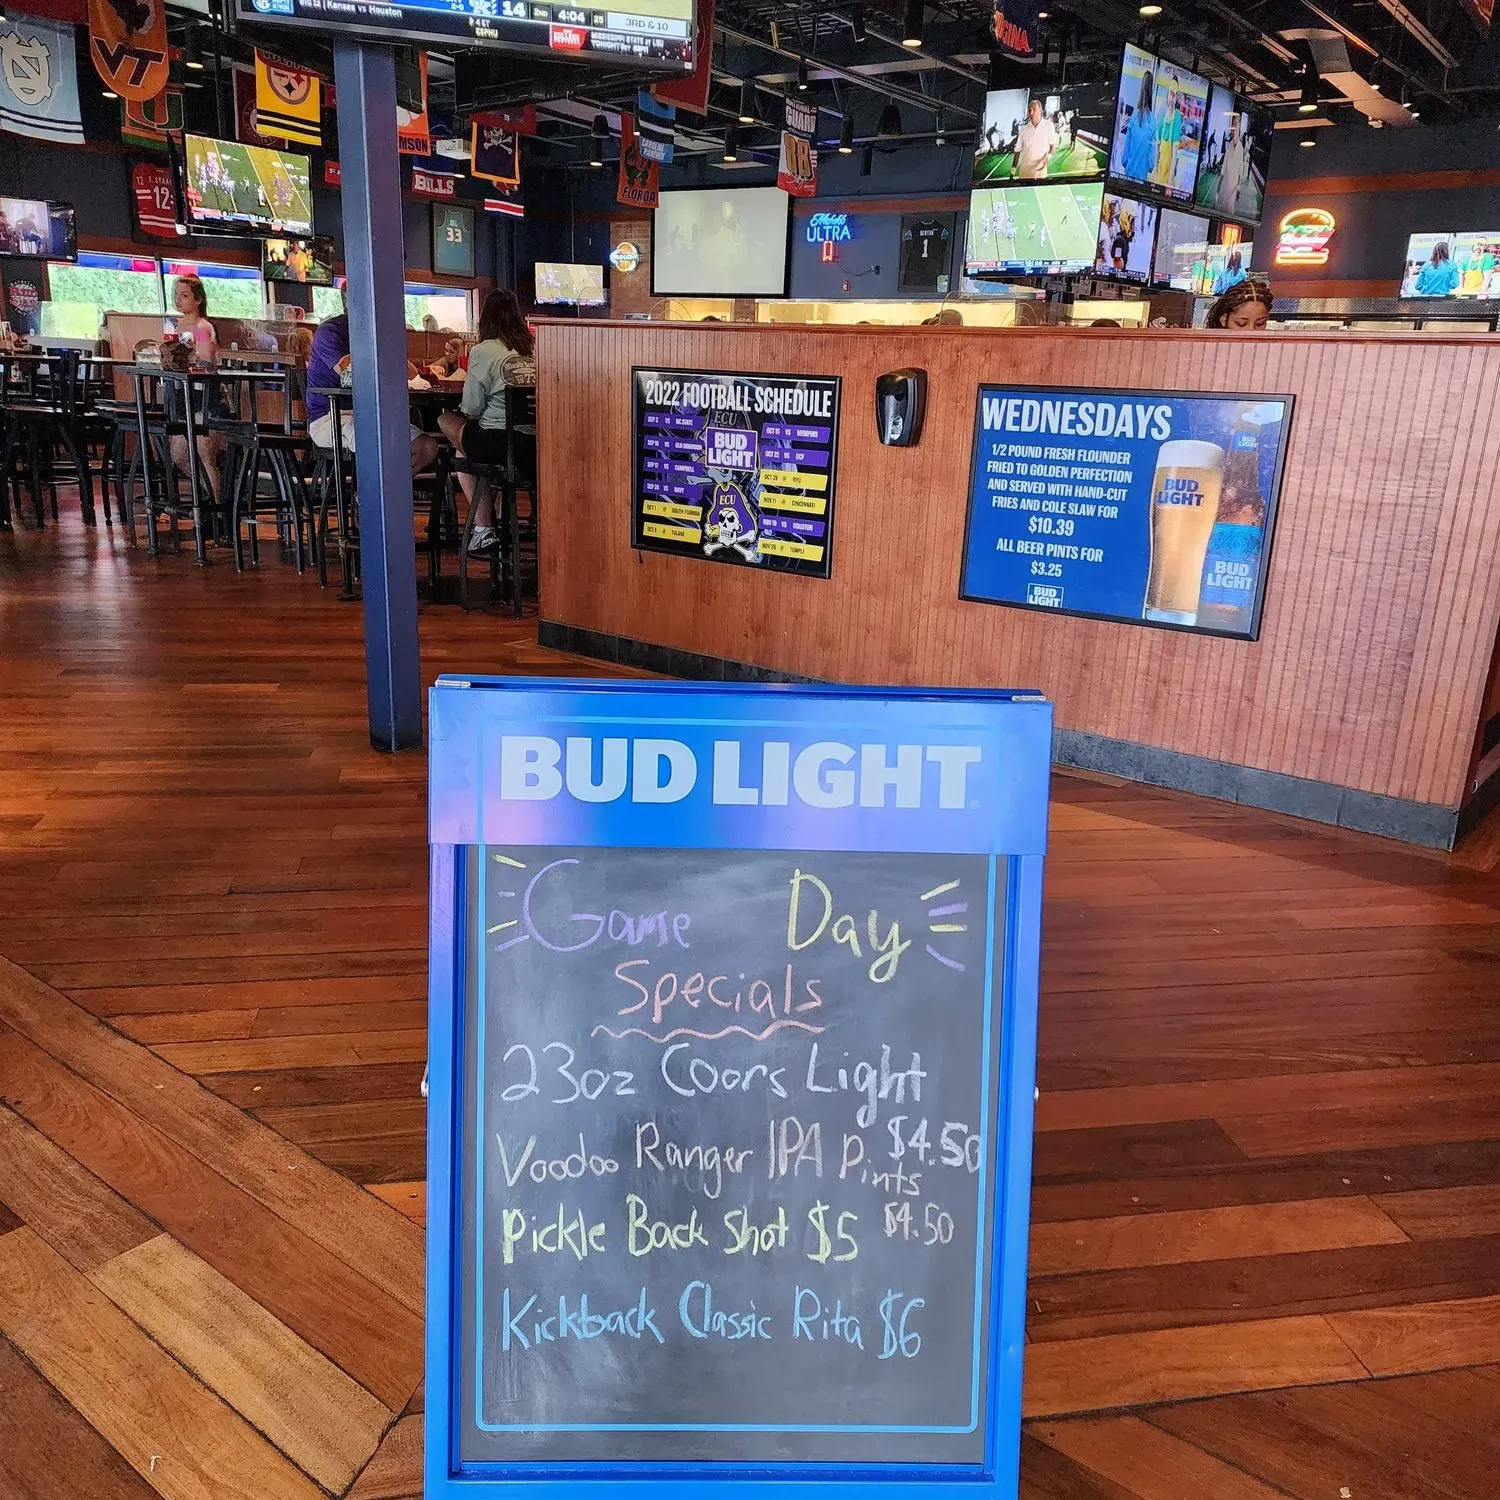 Kansas vs Houston
14
2ND
4:04
25
3RD & 10
4 ET
ESPNU
MISSISSIPPI STATE AT LSU
VT
BILLS
FLORIDA
CAROLINA
PANTHERS
NATIONAL
GUARD
88
12
12
33
1
Michelob
ULTRA
2022 FOOTBALL SCHEDULE
ECU
BUD
LIGHT
SEP 3 VS NC STATE
SEP 10 VS OLD DOMINION
SEP 17 VS CAMPBELL
SEP 24 VS NAVY
OCT 1 @ SOUTH FLORIDA
OCT 8 @ TULANE
OCT 15 VS MEMPHIS
OCT 22 VS UCF
OCT 28 @ BYU
NOV 11 @ CINCINNATI
NOV 19 VS HOUSTON
NOV 26 @ TEMPLE
ECU
WEDNESDAYS
1/2 POUND FRESH FLOUNDER
FRIED TO GOLDEN PERFECTION
AND SERVED WITH HAND-CUT
FRIES AND COLE SLAW FOR
$10.39
ALL BEER PINTS FOR
$3.25
BUD
LIGHT
BUD
LIGHT
BUD
LIGHT
BUD LIGHT
Game Day
Specials
23oz Coors Light
$4.50
Voodoo Ranger IPA Pints
$4.50
Pickle Back Shot $5
Kickback Classic Rita $6